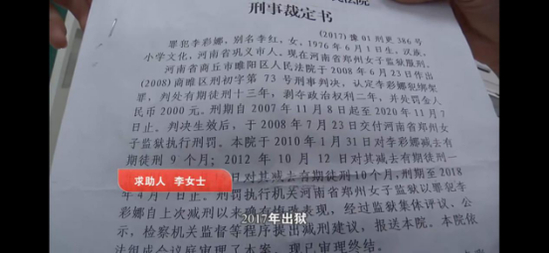 民法院
刑事裁定书
(2017)豫01刑更386号
罪犯李彩娜,别名李红,女,1976年6月1日生,汉族,
小学文化,河南省巩义市人。现在河南省郑州女子监狱服刑。
河南省商丘市睢阳区人民法院于2008年6月23日作出
(2008)商睢区刑初字第73号刑事判决,认定李彩娜犯绑架
罪,判处有期徒刑十三年,剥夺政治权利二年,并处罚金人
民币2000元。刑期自2007年11月8日起至2020年11月7
日止。判决生效后,于2008年7月23日交付河南省郑州女
子监狱执行刑罚。本院于2010年1月31日对李彩娜减去有
期徒刑9个月;2012年10月12日对其减去有期徒刑一
日对其减去有期徒刑10个月,刑期至2018
年4月7日止。刑罚执行机关河南省郑州女子监狱以罪犯李
彩娜自上次减刑以来确有悔改表现,经过监狱集体评议、公
示,检察机关监督等程序提出减刑建议,报送本院。本院依
法组成合议庭审理了本案。现已审理终结。
求助人 李女士
2017年出狱